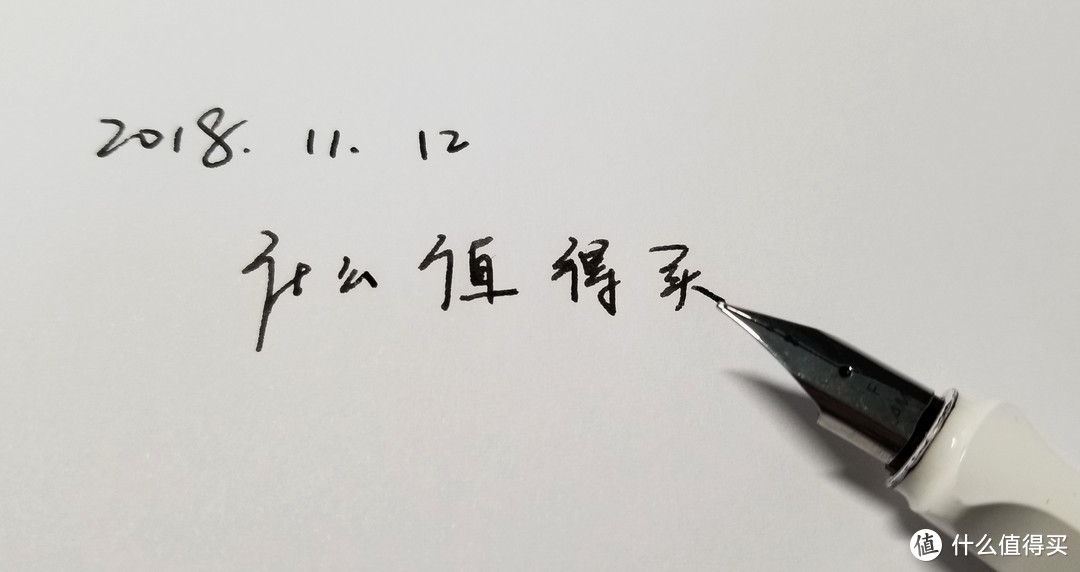 2018. 11. 12
什么值得买
F
值 什么值得买